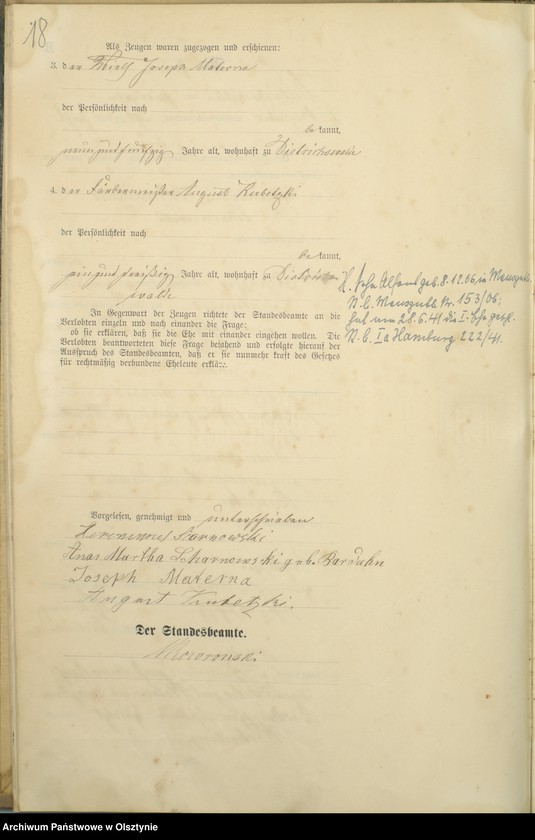 18
Als Zeugen waren zugezogen und erschienen:
3. der Joseph Materna
der Persönlichkeit nach
bekannt,
neunundfünfzig Jahre alt, wohnhaft zu Dietrichswalde
4. der Färbermeister August Kubetzki
der Persönlichkeit nach
bekannt,
einunddreißig Jahre alt, wohnhaft zu Dietrichs
walde
In Gegenwart der Zeugen richtete der Standesbeamte an die
Verlobten einzeln und nach einander die Frage:
ob sie erklären, daß sie die Ehe mit einander eingehen wollen. Die
Verlobten beantworteten diese Frage bejahend und erfolgte hierauf der
Ausspruch des Standesbeamten, daß er sie nunmehr kraft des Gesetzes
für rechtmäßig verbundene Eheleute erkläre.
Sohn Alfons geb. 8.12.06 in Mensguth
N. b. Mensguth Nr. 153/06;
hat am 28.6.41 die I. Ehe geschl.
N. b. Ia Hamburg 222/41.
Vorgelesen, genehmigt und unterschrieben
Scarnowski
Martha Scharnowski geb. Barduhn
Joseph Materna
August Kubetzki.
Der Standesbeamte.
Archiwum Państwowe w Olsztynie